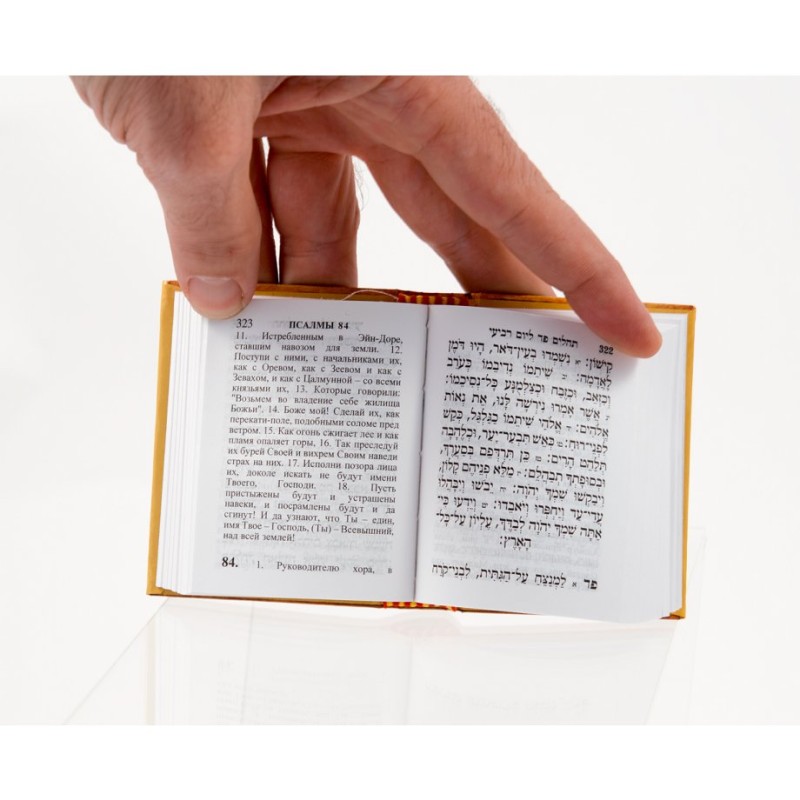 323 ПСАЛМЫ 84
11. Истребленным в Эйн-Доре,
ставшим навозом для земли. 12.
Поступи с ними, с начальниками их,
как с Оревом, как с Зеевом и как с
Зевахом, и как с Цалмунной – со всеми
князьями их, 13. Которые говорили:
"Возьмем во владение себе жилища
Божьи". 14. Боже мой! Сделай их, как
перекати-поле, подобными соломе пред
ветром. 15. Как огонь сжигает лее и как
пламя опаляет горы, 16. Так преследуй
их бурей Своей и вихрем Своим наведи
страх на них. 17. Исполни позора лица
их, доколе искать не будут имени
Твоего, Господи. 18. Пусть
пристыжены будут и устрашены
навеки, и посрамлены будут и да
сгинут! И да узнают, что Ты – един,
имя Твое – Господь, (Ты) – Всевышний,
над всей землей!
84. 1. Руководителю хора, в
תהלים פד ליום רביעי 322
קִישׁוֹן: יא נִשְׁמְדוּ בְעֵין־דֹּאר, הָיוּ דֹּמֶן
לָאֲדָמָה: יב שִׁיתֵמוֹ נְדִיבֵמוֹ כְּעֹרֵב
וְכִזְאֵב, וּכְזֶבַח וּכְצַלְמֻנָּע כָּל־נְסִיכֵמוֹ:
יג אֲשֶׁר אָמְרוּ נִירְשָׁה לָּנוּ, אֵת נְאוֹת
אֱלֹהִים: יד אֱלֹהַי שִׁיתֵמוֹ כַגַּלְגַּל, כְּקַשׁ
לִפְנֵי־רוּחַ: טו כְּאֵשׁ תִּבְעַר־יָעַר, וּכְלֶהָבָה
תְּלַהֵט הָרִים: טז כֵּן תִּרְדְּפֵם בְּסַעֲרֶךָ,
וּבְסוּפָתְךָ תְבַהֲלֵם: יז מַלֵּא פְנֵיהֶם קָלוֹן,
וִיבַקְשׁוּ שִׁמְךָ יְהוָה: יח יֵבֹשׁוּ וְיִבָּהֲלוּ
עֲדֵי־עַד וְיַחְפְּרוּ וְיֹאבֵדוּ: יט וְיֵדְעוּ כִּי־
אַתָּה שִׁמְךָ יְהוָה לְבַדֶּךָ, עֶלְיוֹן עַל־כָּל־
הָאָרֶץ:
פד א לַמְנַצֵּחַ עַל־הַגִּתִּית, לִבְנֵי־קֹרַח